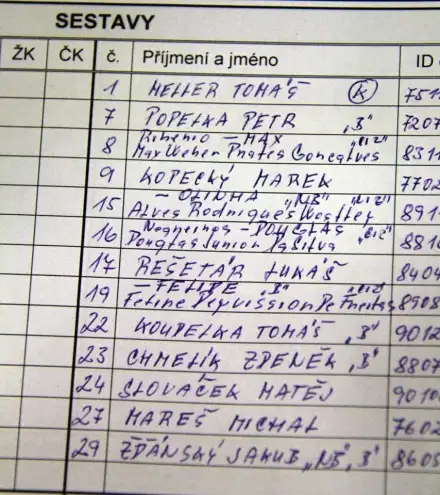 SESTAVY
ŽK ČK č. Příjmení a jméno ID
1 HELLER TOMÁŠ K 7511
7 POPELKA PETR „B" 7207
Ribeiro - MAX
8 Max Weber Prates Goncalves 8311
9 KOPECKÝ MAREK 7702
- OZINHA „NB"
15 Alves Rodrigues Weslley 8911
- DOUGLAS
16 Douglas Junior 8810
17 REŠETÁR LUKÁŠ 8404
- FELIPE „B"
19 Felipe De Freitas 8908
22 KOUDELKA TOMÁŠ „B" 9012
23 CHMELÍK ZDENĚK „B" 8807
24 SLOVAČEK MATĚJ 9010
27 MAREŠ MICHAL 7602
29 ŽĎÁNSKÝ JAKUB „NB", B" 8605